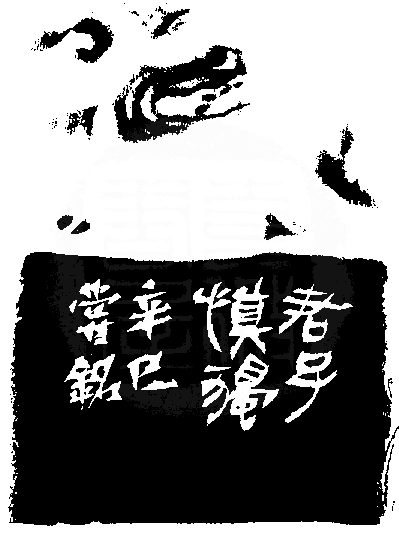 君子
慎獨
辛巳
嘗銘